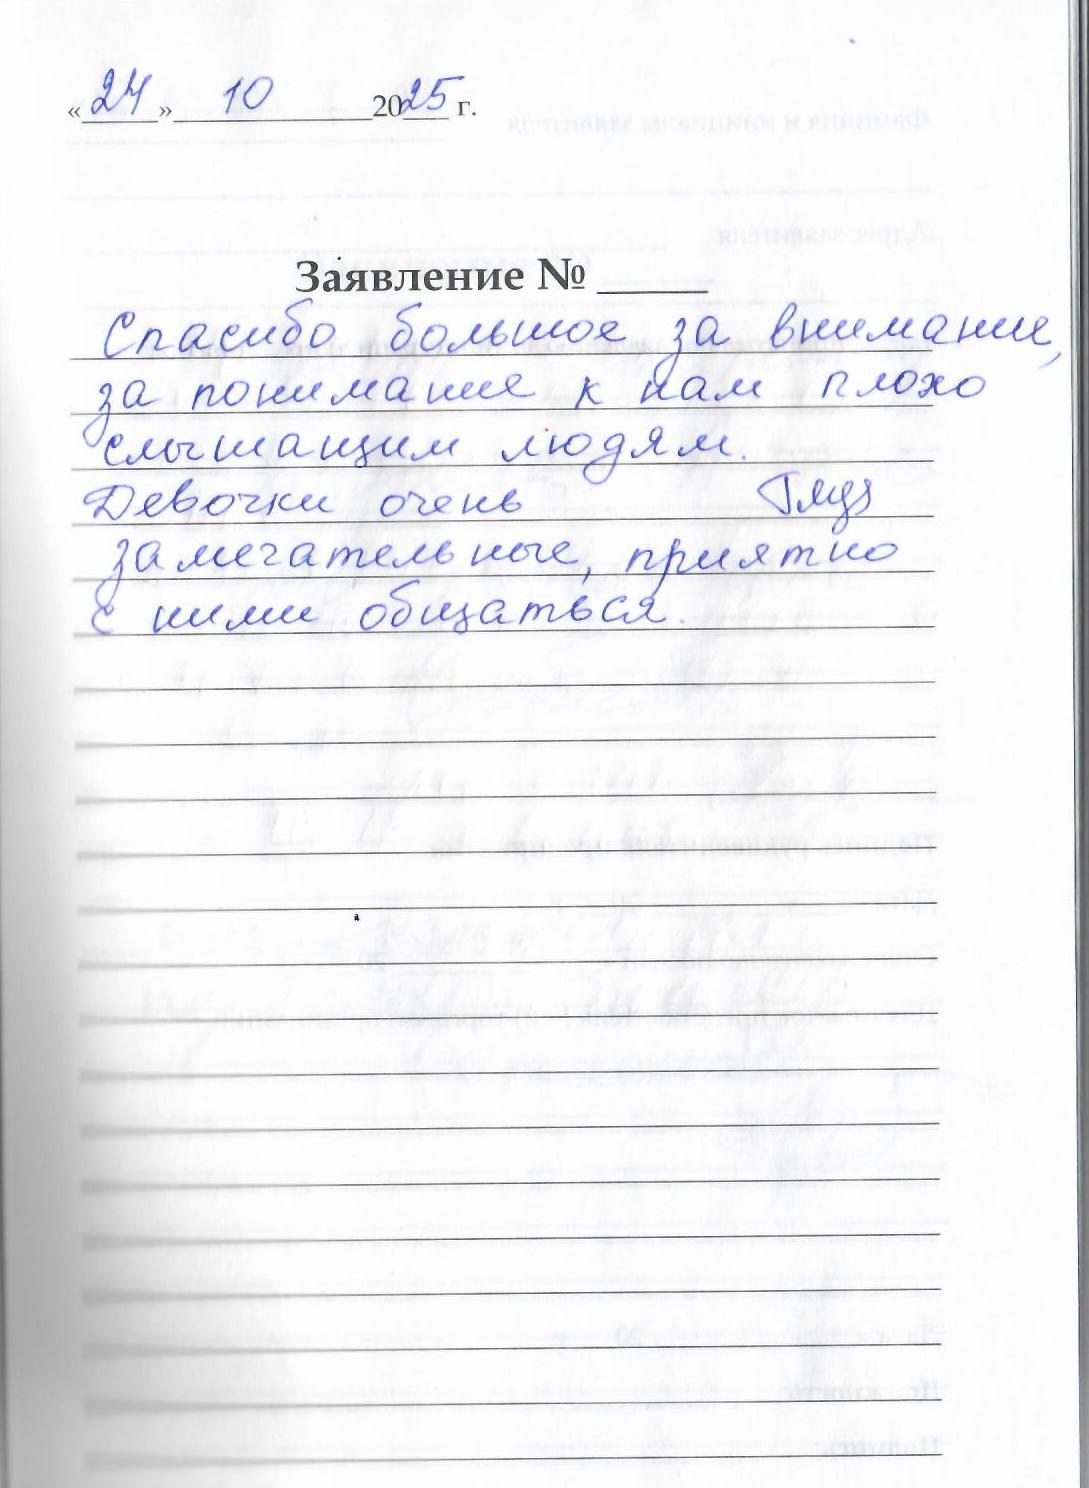 «24» 10 2025 г.
Заявление № ____
Спасибо большое за внимание,
за понимание к нам плохо
слышащим людям.
Девочки очень
замечательные, приятно
с ними общаться.